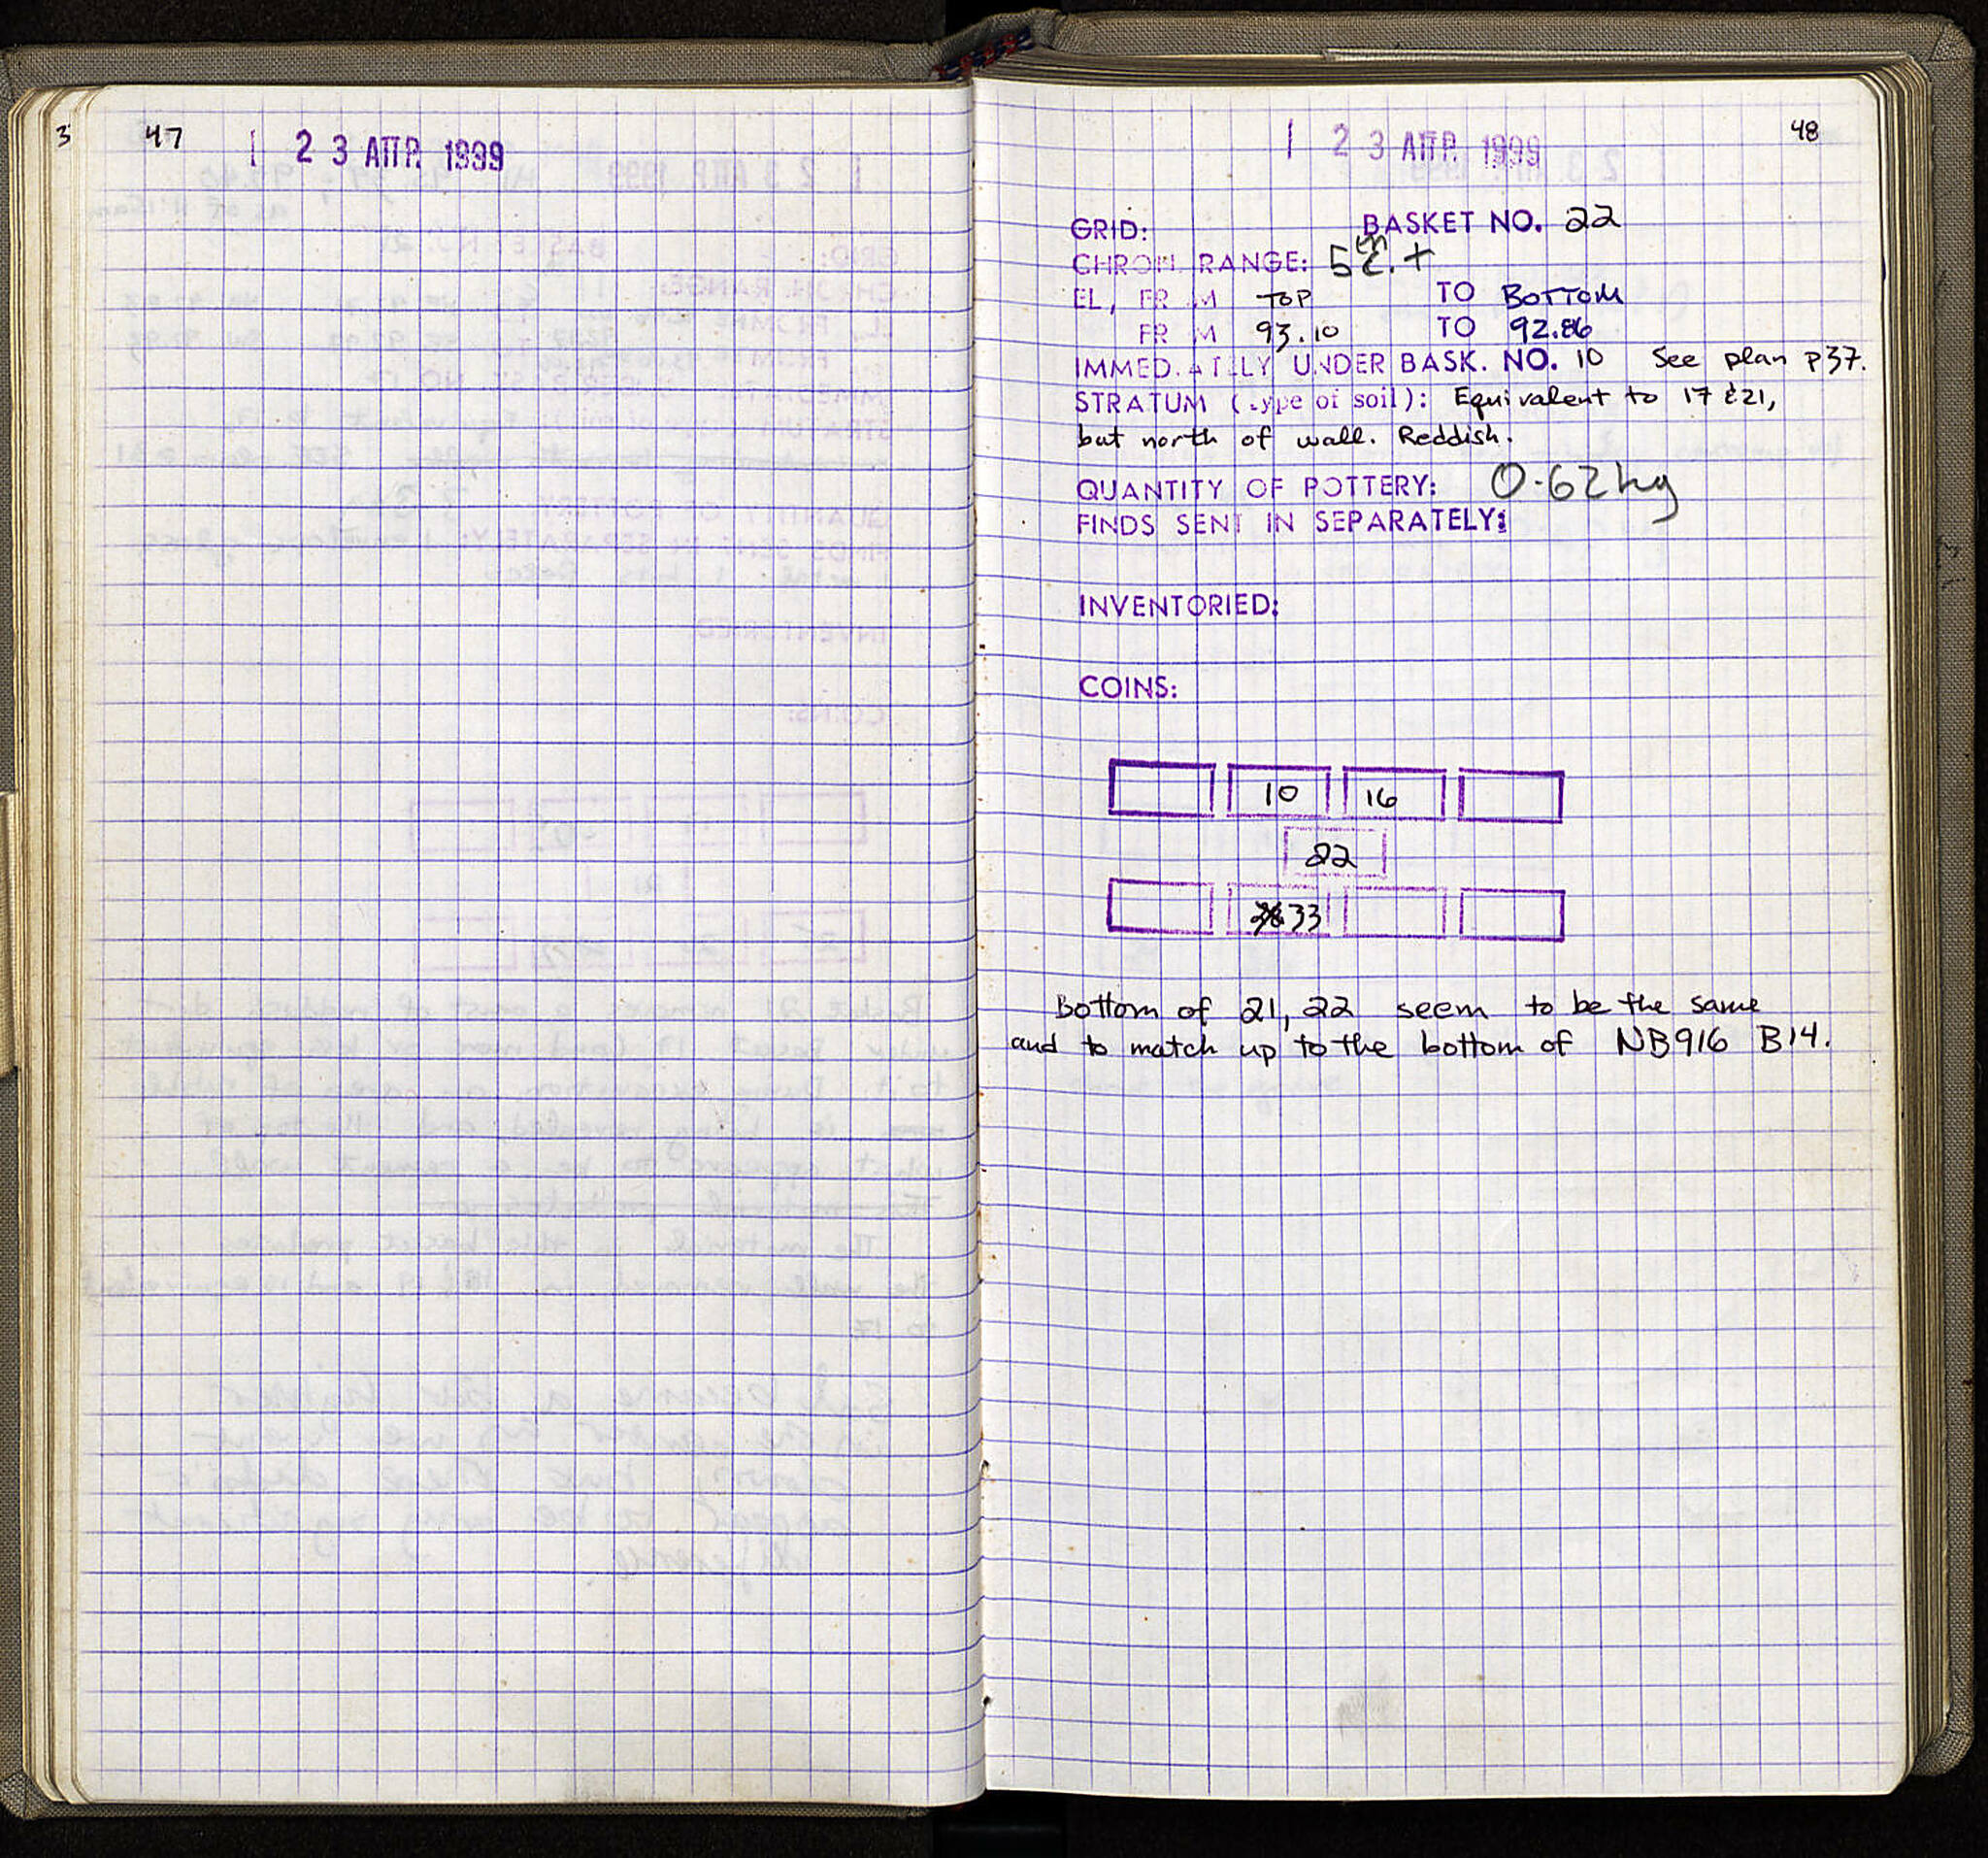 3
47
| 2 3 ΑΠΡ. 1999
| 2 3 ΑΠΡ. 1999
48
GRID: BASKET NO. 22
CHRON. RANGE: 5th c. +
EL, FR M TOP TO BOTTOM
FR M 93.10 TO 92.86
IMMED.ATELY UNDER BASK. NO. 10 See plan p37.
STRATUM (.ype of soil): Equivalent to 17 & 21,
but north of wall. Reddish.
QUANTITY OF POTTERY: 0.62 kg
FINDS SENT IN SEPARATELY:
INVENTORIED:
COINS:
10 16
22
33
Bottom of 21, 22 seem to be the same
and to match up to the bottom of NB916 B14.